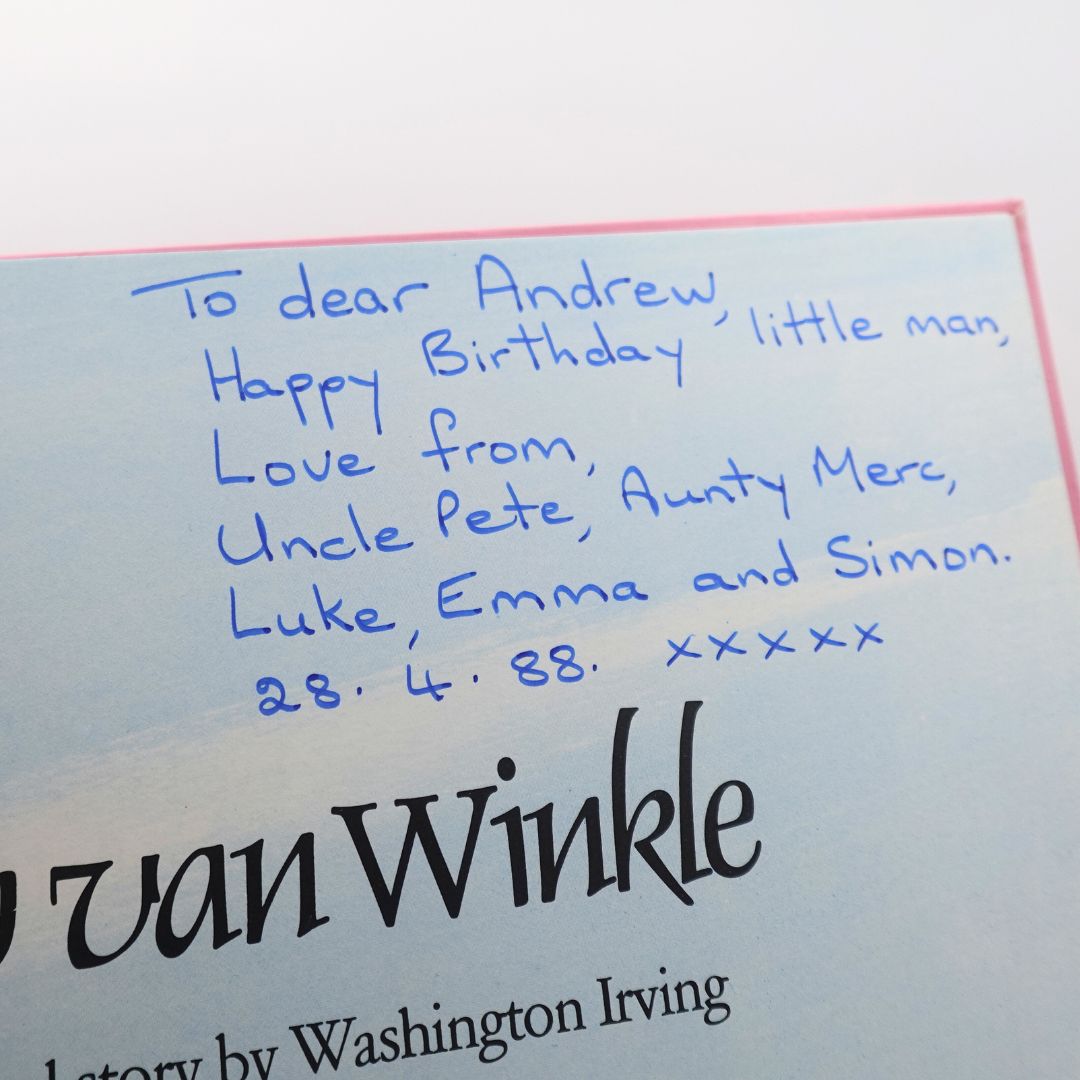 To dear Andrew,
Happy Birthday little man,
Love from,
Uncle Pete, Aunty Merc,
Luke, Emma and Simon.
28. 4. 88. xxxxx
van Winkle
story by Washington Irving